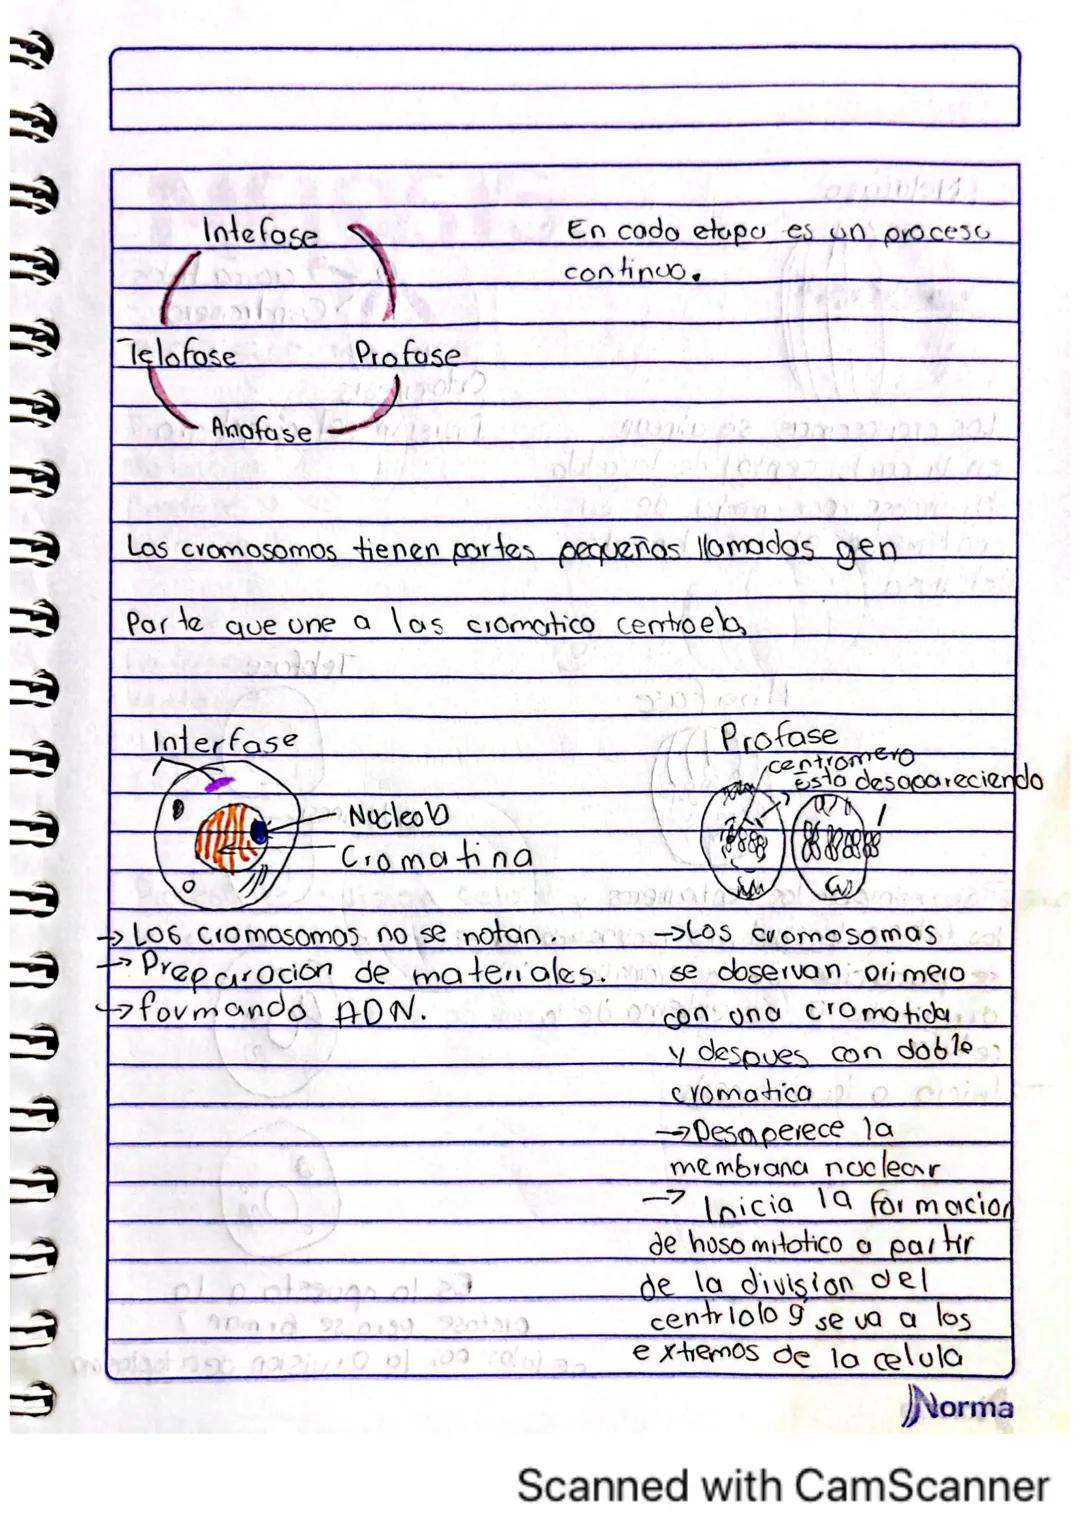 Intefase
En cada etapa es un proceso
continuo.
Telofase
Profase
Anafase
Los cromosomas tienen partes pequeñas llamadas gen
Parte que une a las cromatico
Interfase
Profase
centromero
Esta desapareciendo
Nucleolo
Cromatina
→ Los cromosomas no se notan.
→ Preparacion de materiales.
→ formando ADN.
→ Los cromosomas
se observan primero
con una cromatida
y despues con doble
cromatica
→ Desaperece la
membrana nuclear
→ Inicia la formacion
de huso mitotico a partir
de la division del
centriolo y se va a los
extremos de la celula
Norma
Scanned with CamScanner